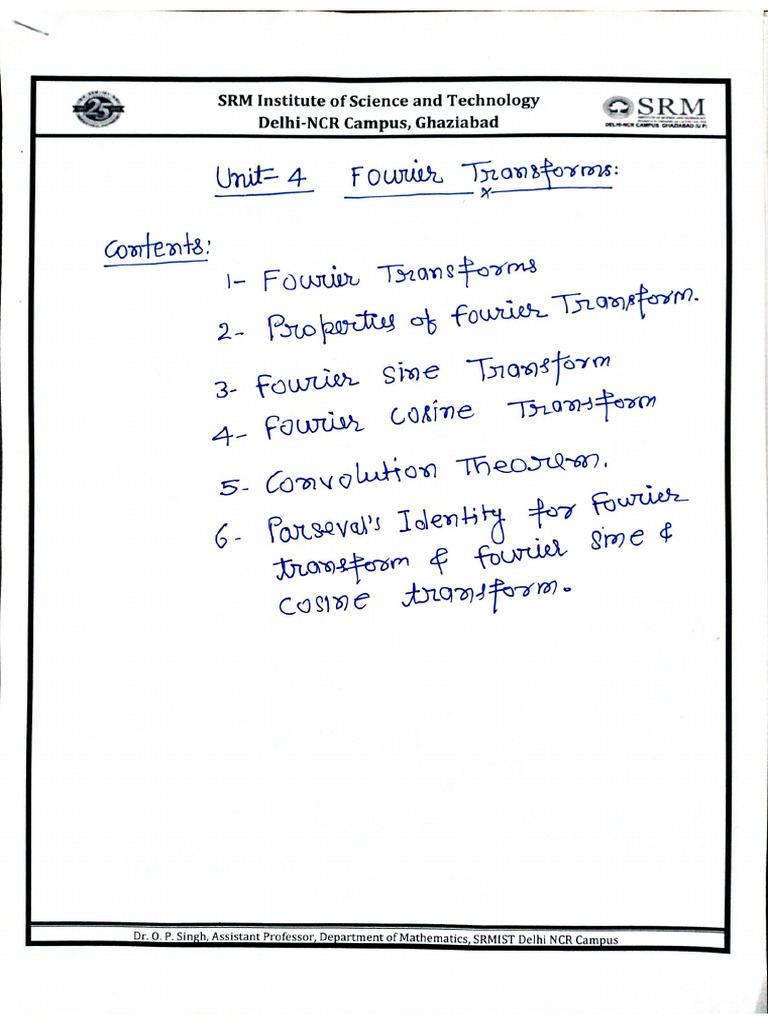 25
SRM Institute of Science and Technology
Delhi-NCR Campus, Ghaziabad
SRM
DELHI-NCR CAMPUS GHAZIABAD (U.P)
Unit= 4 Fourier Transforms:
Contents:
1- Fourier Transforms
2- Properties of Fourier Transform.
3- Fourier Sine Transform
4- Fourier Cosine Transform
5- Convolution Theorem.
6- Parseval's Identity for Fourier
transform & fourier sine &
cosine transform.
Dr. O. P. Singh, Assistant Professor, Department of Mathematics, SRMIST Delhi NCR Campus